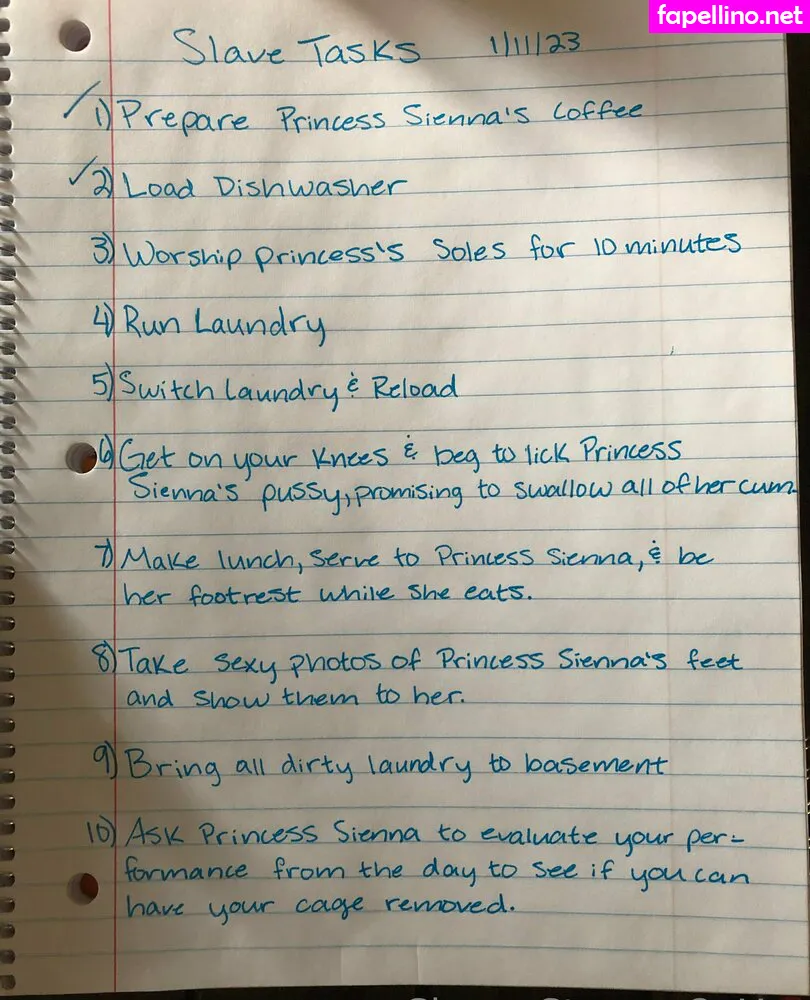 fapellino.net
Slave Tasks 1/11/23
1) Prepare Princess Sienna's Coffee
2) Load Dishwasher
3) Worship Princess's Soles for 10 minutes
4) Run Laundry
5) Switch Laundry & Reload
6) Get on your knees & beg to lick Princess
Sienna's pussy, promising to swallow all of her cum.
7) Make lunch, serve to Princess Sienna, & be
her footrest while she eats.
8) Take sexy photos of Princess Sienna's feet
and show them to her.
9) Bring all dirty laundry to basement
10) Ask Princess Sienna to evaluate your per-
formance from the day to see if you can
have your cage removed.